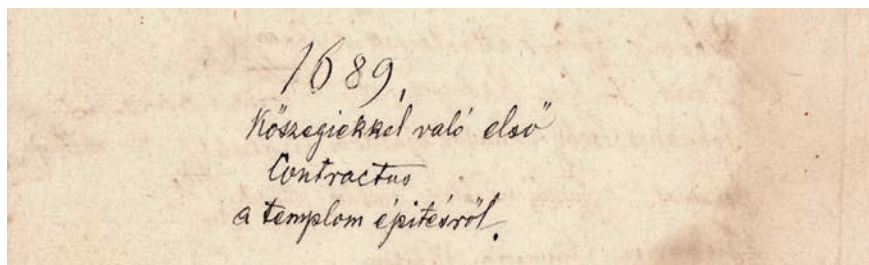 1689,
Kőszegiekkel való első
Contractus
a templom épitésről.